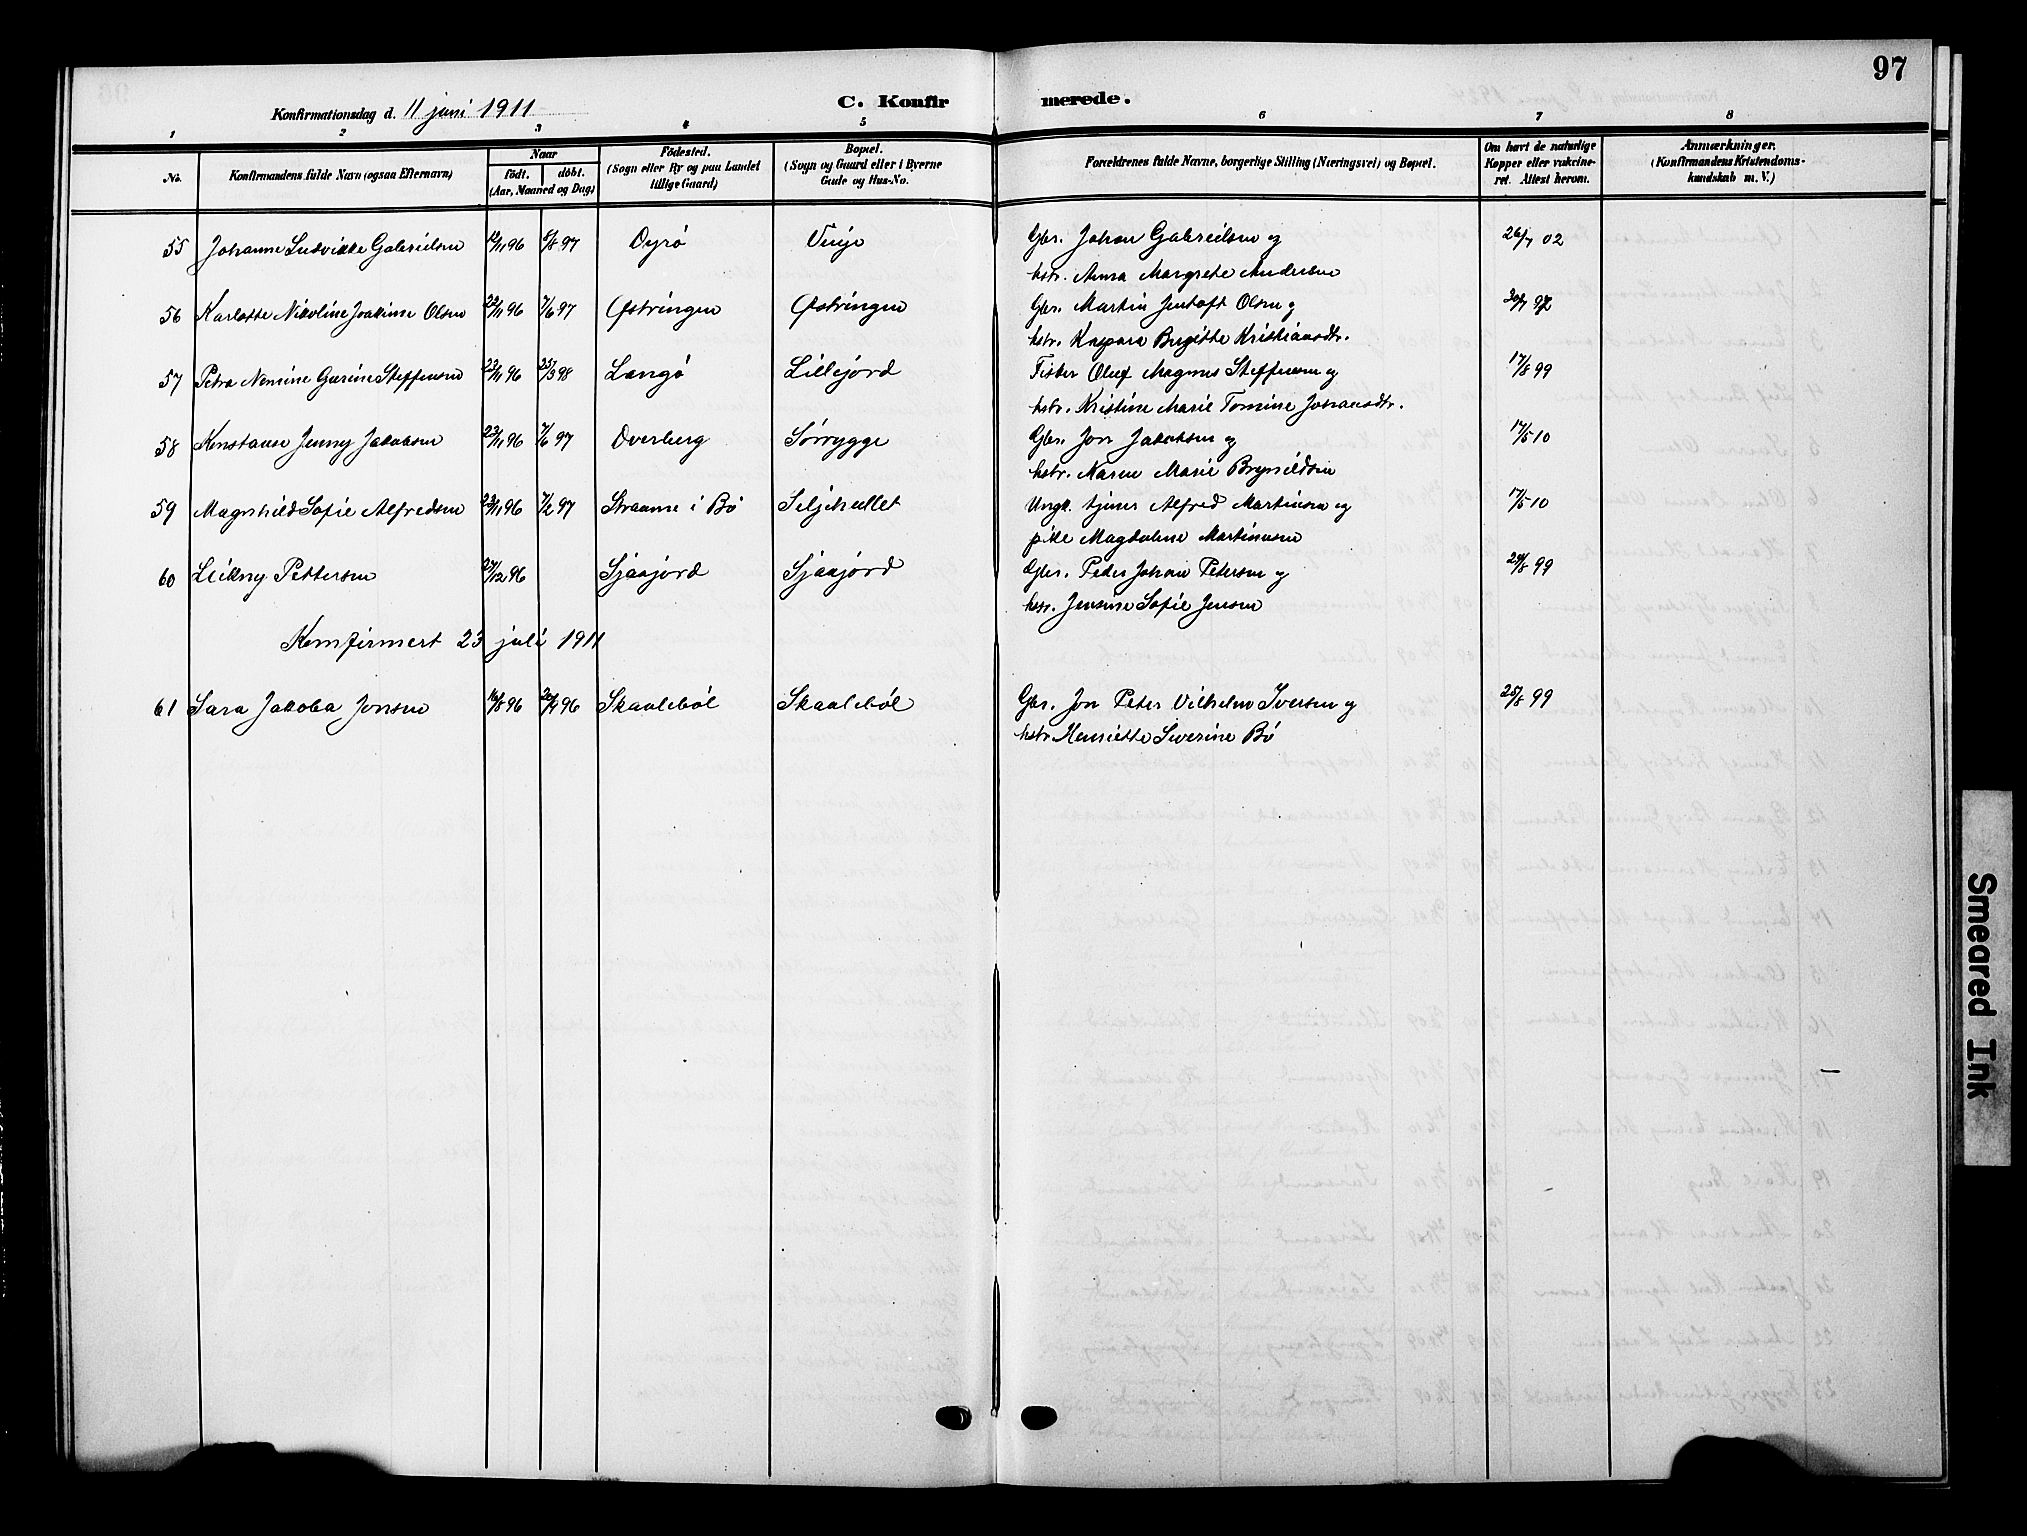 97
Konfirmationsdag d. 11 juni 1911
C. Konfirmerede.
1 2 3 4 5 6 7 8
No. Konfirmandens fulde Navn (ogsaa Efternavn) Naar födt. döbt. (Aar, Maaned og Dag) Födested. (Sogn eller By og paa Landet tillige Gaard) Bopæl. (Sogn og Gaard eller i Byerne Gade og Hus-No. Forældrenes fulde Navne, borgerlige Stilling (Næringsvei) og Bopæl. Om havt de naturlige Kopper eller vakcineret. Attest herom. Anmærkninger. (Konfirmandens Kristendomskundskab m. V.)
55 Johanne Ludvikke Gabrielsen 96 5/8 97 Dyrö Vinje Gbr. Johan Gabrielsen og 26/7 02
hstr. Anna Margrete Andersen
56 Karlotte Nikoline Joakime Olsen 22/11 96 7/6 97 Østringen Østringen Gbr. Martin Jentoft Olsen og
hstr. Kaspara Birgitte Kristiansdtr.
57 Petra Nensine Gurine Steffensen 23/11 96 25/3 98 Langö Lillejord Fisker Oluf Magnus Steffensen og 17/8 99
hstr. Kristine Marie Tomine Johansdtr.
58 Konstanse Jenny Jakobsen 23/11 96 7/6 97 Overberg Sörrygge Gbr. Jon Jakobsen og 17/5 10
hstr. Karen Marie Brynildsen
59 Magnhild Sofie Alfredsen 23/11 96 7/2 97 Straume i Bö Seljehullet Ungk. tjener Alfred Martinsen og 17/5 10
pike Magdalene Martinusen
60 Leikny Pettersen 27/12 96 Sjaajord Sjaajord Gbr. Peder Johan Petersen og 24/8 99
hstr. Jensine Sofie Jensen
Konfirmert 23 juli 1911
61 Sara Jakoba Jonsen 16/8 96 96 Skaaleböl Skaaleböl Gbr. Jon Peter Vilhelm Iversen og 25/8 99
hstr Henriette Severine Bö
Smeared Ink